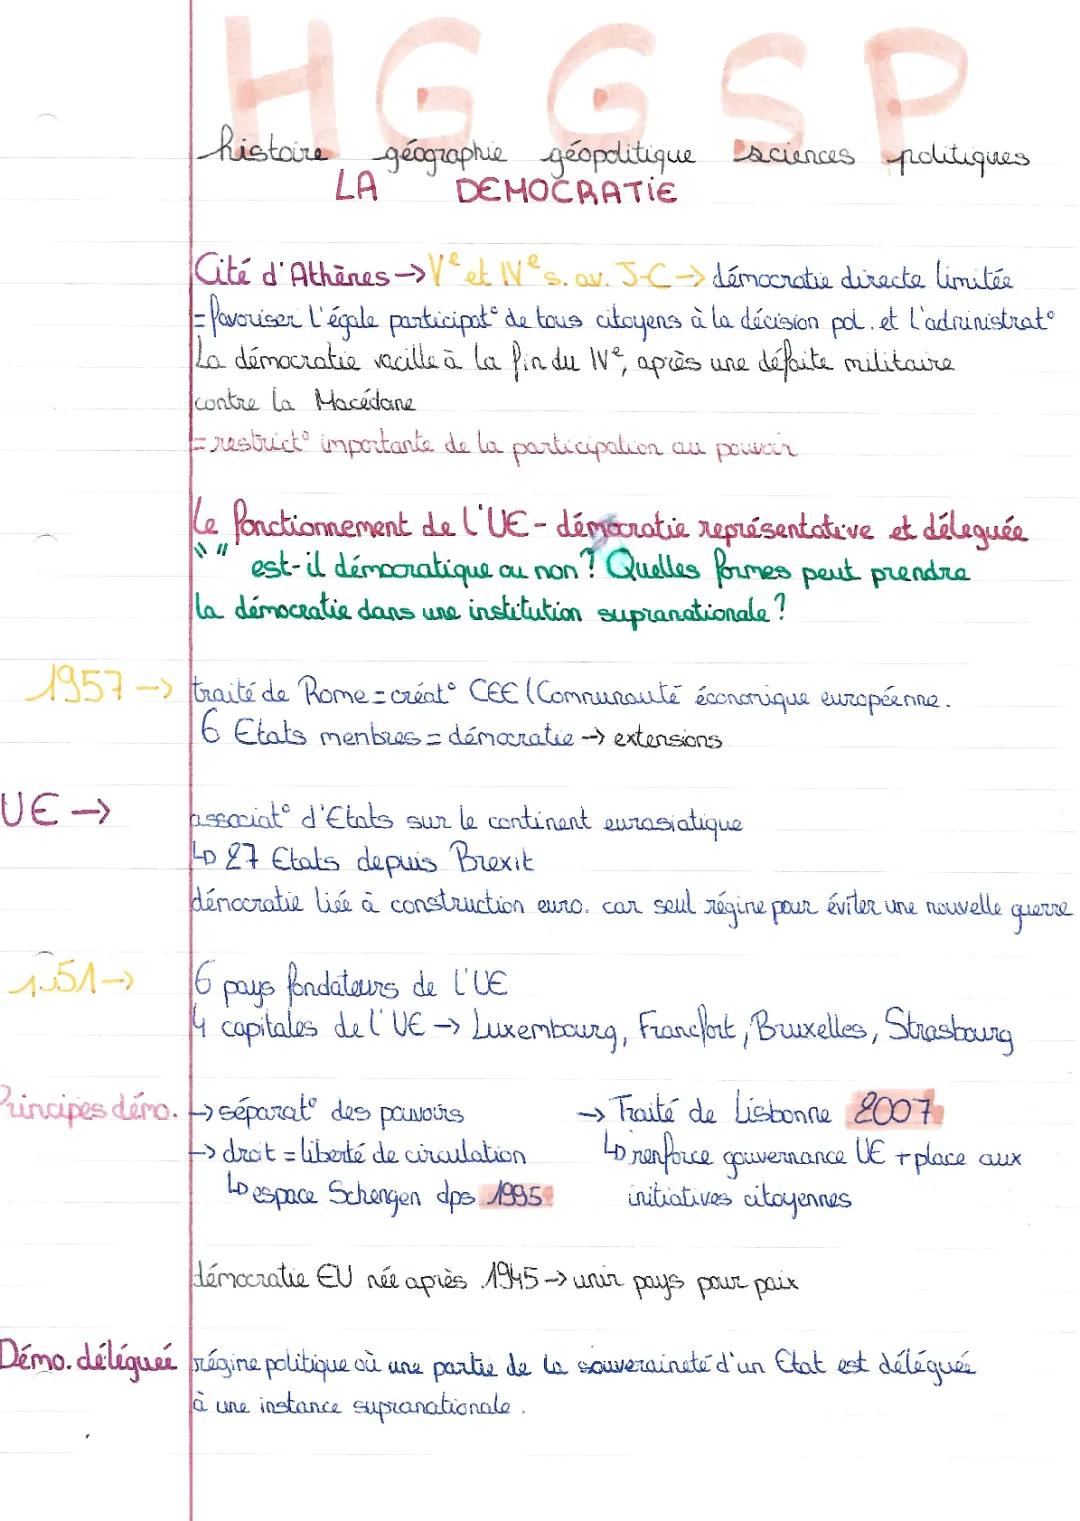 HGGSP
histoire géographie géopolitique sciences politiques
LA DEMOCRATIE
Cité d'Athènes → Ve et IVe s. av. J-C → démocratie directe limitée
= favoriser l'égale participat° de tous citoyens à la décision pol. et l'administrat°
La démocratie vacille à la fin du IVe, après une défaite militaire
contre la Macédoine
= restrict° importante de la participation au pouvoir
Le fonctionnement de l'UE - démocratie représentative et déleguée
" " est-il démocratique ou non ? Quelles formes peut prendre
la démocratie dans une institution supranationale ?
1957 → traité de Rome = créat° CEE (Communauté économique européenne.
6 Etats membres = démocratie → extensions
UE → associat° d'Etats sur le continent eurasiatique
↳ 27 Etats depuis Brexit
démocratie liée à construction euro. car seul régime pour éviter une nouvelle guerre
1951 → 6 pays fondateurs de l'UE
4 capitales de l'UE → Luxembourg, Francfort, Bruxelles, Strasbourg
Principes démo. → séparat° des pouvoirs → Traité de Lisbonne 2007
→ droit = liberté de circulation ↳ renforce gouvernance UE + place aux
↳ espace Schengen dps 1995 initiatives citoyennes
démocratie EU née après 1945 → unir pays pour paix
Démo. déléguée régime politique où une partie de la souveraineté d'un Etat est déléguée
à une instance supranationale.